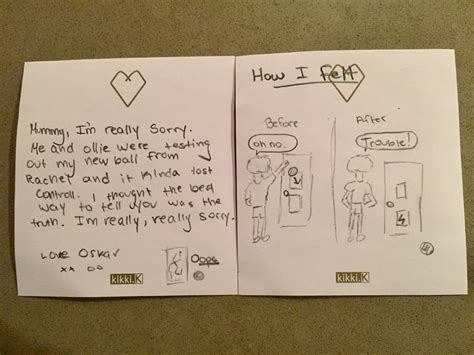 Mummy, I'm really Sorry.
Me and Ollie were testing
out my new ball from
Rachel and it kinda lost
Controll. I thought the best
way to tell you was the
truth. I'm really, really sorry.
Love Oskar
xx oo
Oops
kikki.K
How I felt
Before
oh no.
After
Trouble!
kikki.K